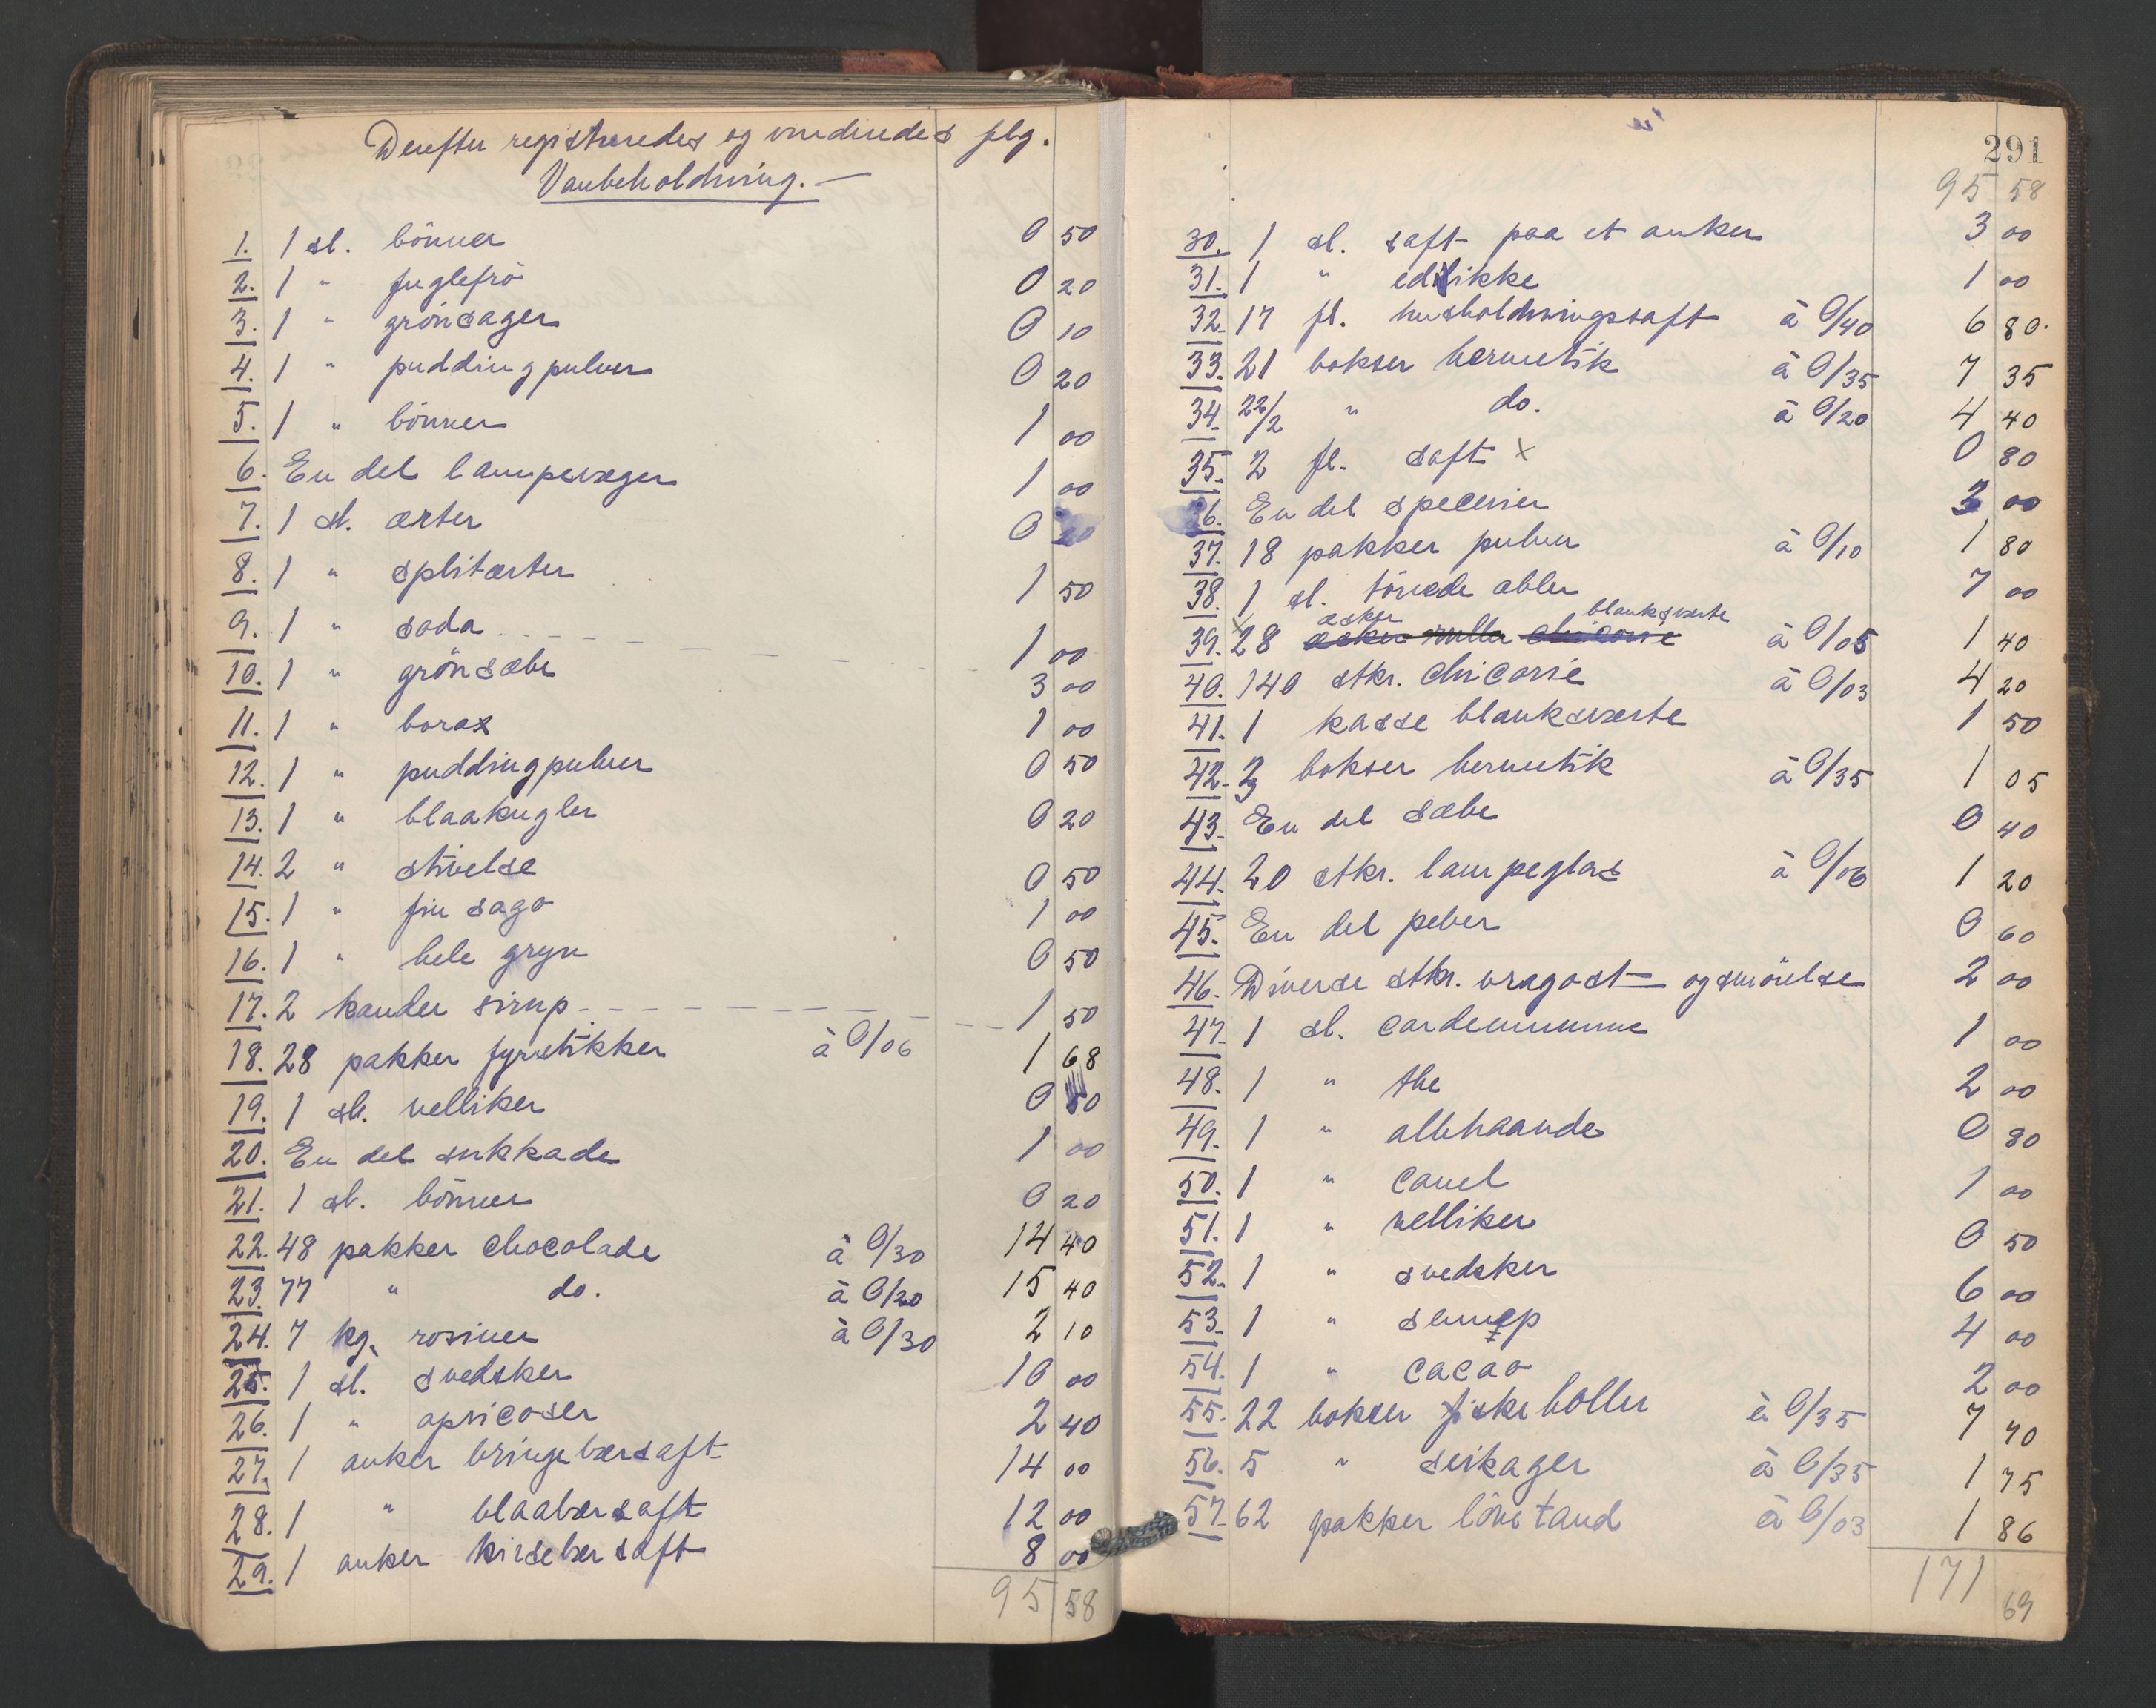 Derefter registreredes og vurderedes flg.
Varebeholdning. —
1. 1 sl. bönner 0 50
2. 1 " fuglefrö 0 20
3. 1 " grönsager 0 10
4. 1 " puddingpulver 0 20
5. 1 " bönner 1 00
6. En del lampevæger 1 00
7. 1 sl. ærter 0 20
8. 1 " splitærter 1 50
9. 1 " soda 1 00
10. 1 " grönsæbe 3 00
11. 1 " borax 1 00
12. 1 " puddingpulver 0 50
13. 1 " blaakugler 0 20
14. 2 " stivelse 0 50
15. 1 " fin sago 1 00
16. 1 " hele gryn 0 50
17. 2 kander sirup 1 50
18. 28 pakker fyrstikker à 0/06 1 68
19. 1 sk. nelliker 0 50
20. En del sukkade 1 00
21. 1 sk. bönner 0 20
22. 48 pakker chocolade à 0/30 14 40
23. 77 " do. à 0/20 15 40
24. 7 kg. rosiner à 0/30 2 10
25. 1 sl. svedsker 10 00
26. 1 " apricoser 2 40
27. 1 anker bringebærsaft 14 00
28. 1 " blaabærsaft 12 00
29. 1 anker kirsebærsaft 8 00
95 58
291
95 58
30. 1 sl. saft paa et anker 3 00
31. 1 " edikke 1 00
32. 17 fl. husholdningssaft à 0/40 6 80.
33. 21 bokser hermetik à 0/35 7 35
34. 22/2 " do. à 0/20 4 40
35. 2 fl. saft x 0 80
36. En del specerier 3 00
37. 18 pakker pulver à 0/10 1 80
38. 1 sl. törrede æbler 7 00
æsker blanksværte
39. 28 æsker ruller chicorie à 0/05 1 40
40. 140 stkr. chicorie à 0/03 4 20
41. 1 kasse blanksværte 1 50
42. 3 bokser hermetik à 0/35 1 05
43. En del sæbe 0 40
44. 20 stkr. lampeglas à 0/06 1 20
45. En del peber 0 60
46. Diverse stkr. vragost og smörelse 2 00
47. 1 sl. cardemumme 1 00
48. 1 " the 2 00
49. 1 " allehaande 0 80
50. 1 " canel 1 00
51. 1 " nelliker 0 50
52. 1 " svedsker 6 00
53. 1 " sennep 4 00
54. 1 " cacao 2 00
55. 22 bokser fiskeboller à 0/35 7 70
56. 5 " seikager à 0/35 1 75
57. 62 pakker lövetand à 0/03 1 86
171 69